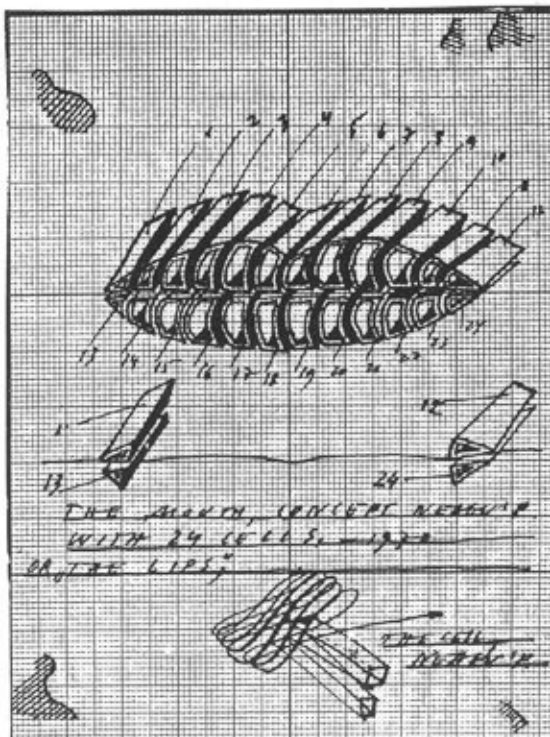 1 2 3 4 5 6 7 8 9 10 12
13 14 15 16 17 18 19 20 22 23 24
1 12
13 24
THE MOUTH, CONCEPT
WITH 24 CELLS, 1970
OR "THE LIPS,"
THE CELL